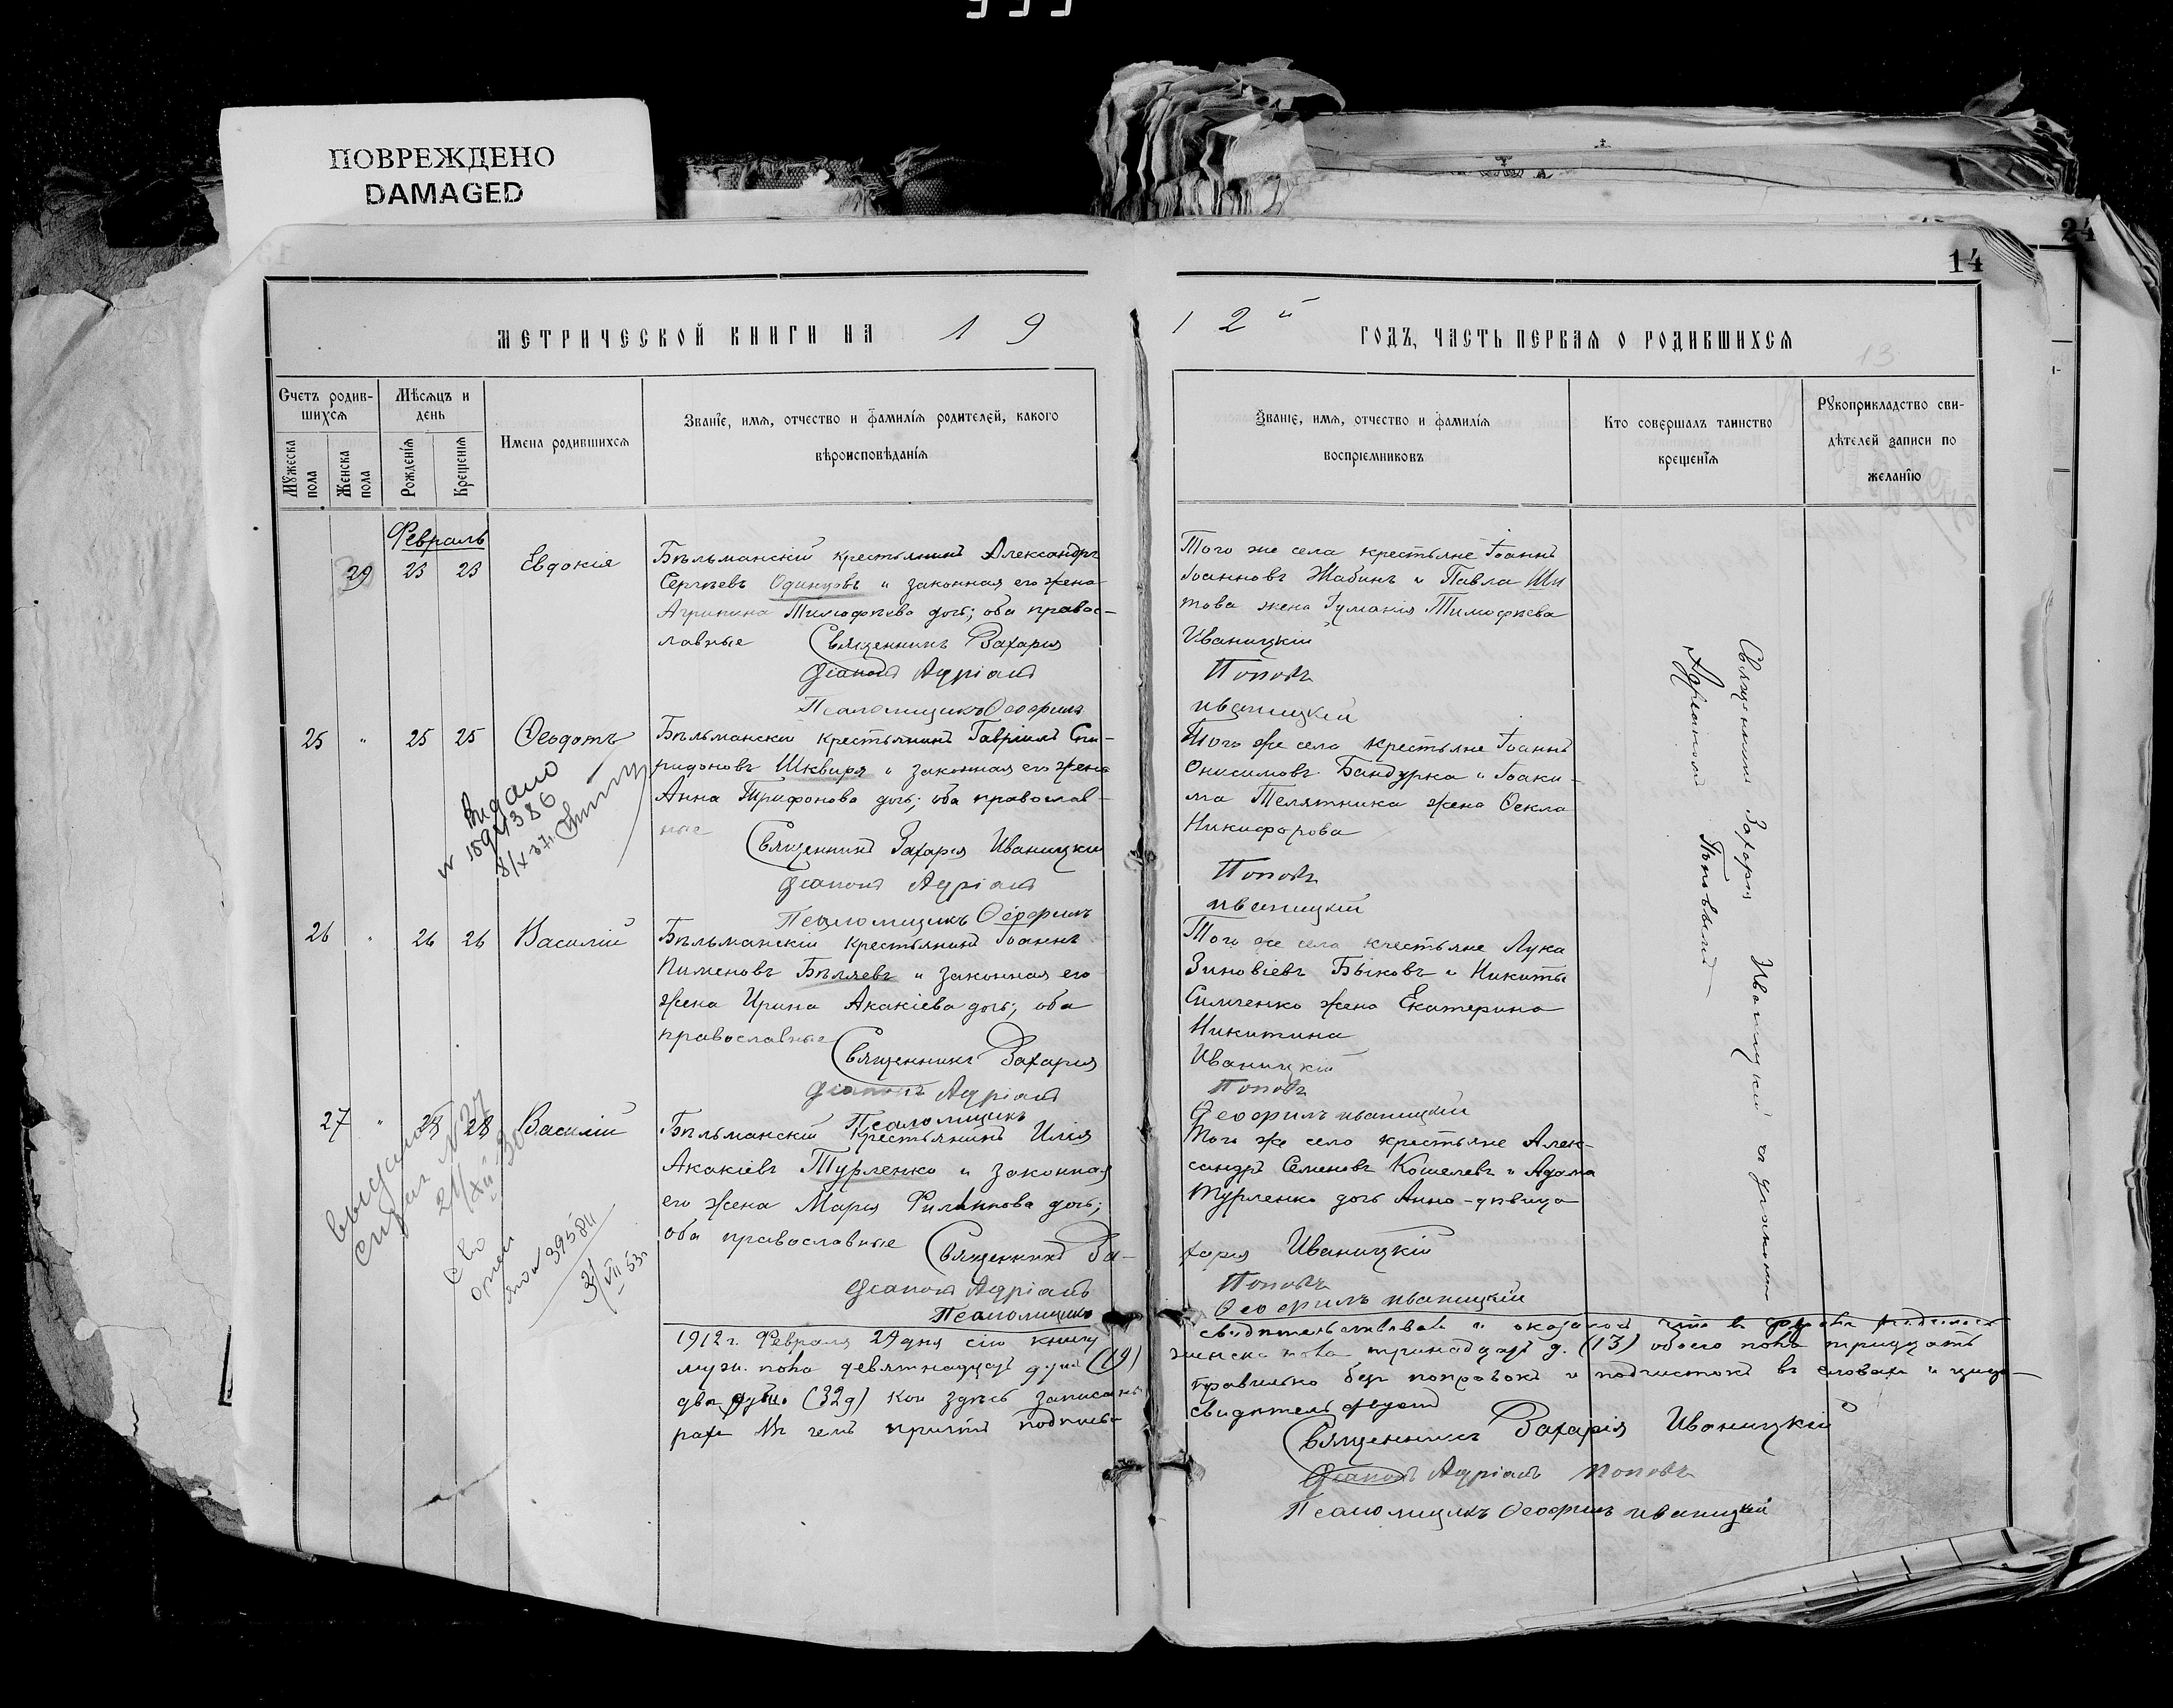 ПОВРЕЖДЕНО
DAMAGED
24
14
МЕТРИЧЕСКОЙ КНИГИ НА 19
12й ГОДЪ, ЧАСТЬ ПЕРВАЯ О РОДИВШИХСЯ
13
Счетъ родив-
шихся
Мужеска пола
Женска пола
Мѣсяцъ и
день
Рожденія
Крещенія
Имена родившихся
Званіе, имя, отчество и фамилія родителей, какого
вѣроисповѣданія
Званіе, имя, отчество и фамилія
воспріемниковъ
Кто совершалъ таинство
крещенія
Рукоприкладство сви-
дѣтелей записи по
желанію
Февраль
29 23 23 Евдокія
Бѣльманскій крестьянинъ Александръ
Сергѣевъ Одинцовъ и законная его жена
Агрипина Тимофѣева дочь; оба правос-
лавные Священникъ Захарія
Діаконъ Адріанъ
Псаломщикъ Ѳеофилъ
Того же села крестьяне Іоаннъ
Іоанновъ Жабинъ и Павла Ши
това жена Іуманія Тимофѣева
Иваницкій
Поповъ
Иваницкій
25 " 25 25 Ѳеодотъ
Бѣльманскій крестьянинъ Гавріилъ Спи-
ридоновъ Шквиря и законная его жена
Анна Трифонова дочь; оба православ-
ные
Священникъ Захарія Иваницкій
Діаконъ Адріанъ
Псаломщикъ Ѳеофилъ
Того же села крестьяне Іоаннъ
Онисимовъ Бандурка и Іоаки-
ма Телятника жена Ѳекла
Никифорова
Поповъ
Иваницкій
Видано
26 " 26 26 Василій
Бѣльманскій крестьянинъ Іоаннъ
Пименовъ Бѣляевъ и законная его
жена Ирина Акакіева дочь; оба
православные
Священникъ Захарія
Діаконъ Адріанъ
Псаломщикъ
Того же села крестьяне Лука
Зиновіевъ Быковъ и Никиты
Симченко жена Екатерина
Никитина
Иваницкій
Поповъ
Ѳеофилъ Иваницкій
27 " 28 28 Василій
Бѣльманскій крестьянинъ Илія
Акакіевъ Турленко и законная
его жена Марія Филиппова дочь;
оба православные Священникъ За-
Діаконъ Адріанъ
Псаломщикъ
Того же села крестьяне Алек-
сандръ Семеновъ Кошелевъ и Адама
Турленко дочь Анна-дѣвица
харія Иваницкій
Поповъ
Ѳеофилъ Иваницкій
39584
Священникъ Захарія Иваницкій съ діакономъ
Адріаномъ Поповымъ
1912 г. Февраля 29 дня сію книгу
свидѣтельствовали и оказалось что въ
муж. пола девятнадцать душъ (19)
женска пола тринадцать д. (13) обоего пола тридцать
двѣ души (32 д) кои здѣсь записаны
правильно безъ поправокъ и подчистокъ въ словахъ и циф-
рахъ Въ чемъ причтъ подписью
свидѣтельствуетъ
Священникъ Захарія Иваницкій
Діаконъ Адріанъ Поповъ
Псаломщикъ Ѳеофилъ Иваницкій